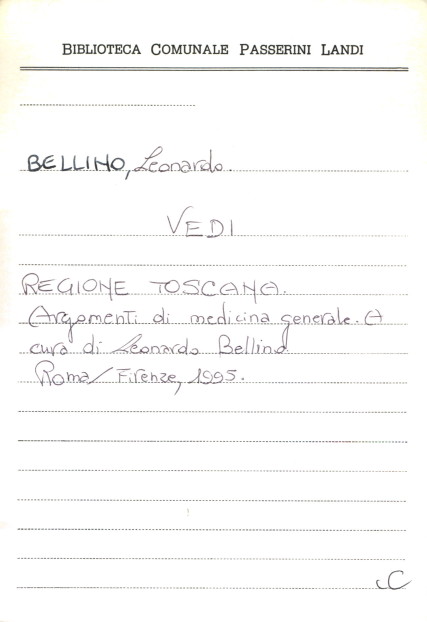 BIBLIOTECA COMUNALE PASSERINI LANDI
BELLINO, Leonardo.
VEDI
REGIONE TOSCANA.
Argomenti di medicina generale. A
cura di Leonardo Bellino.
Roma/Firenze, 1995.
C